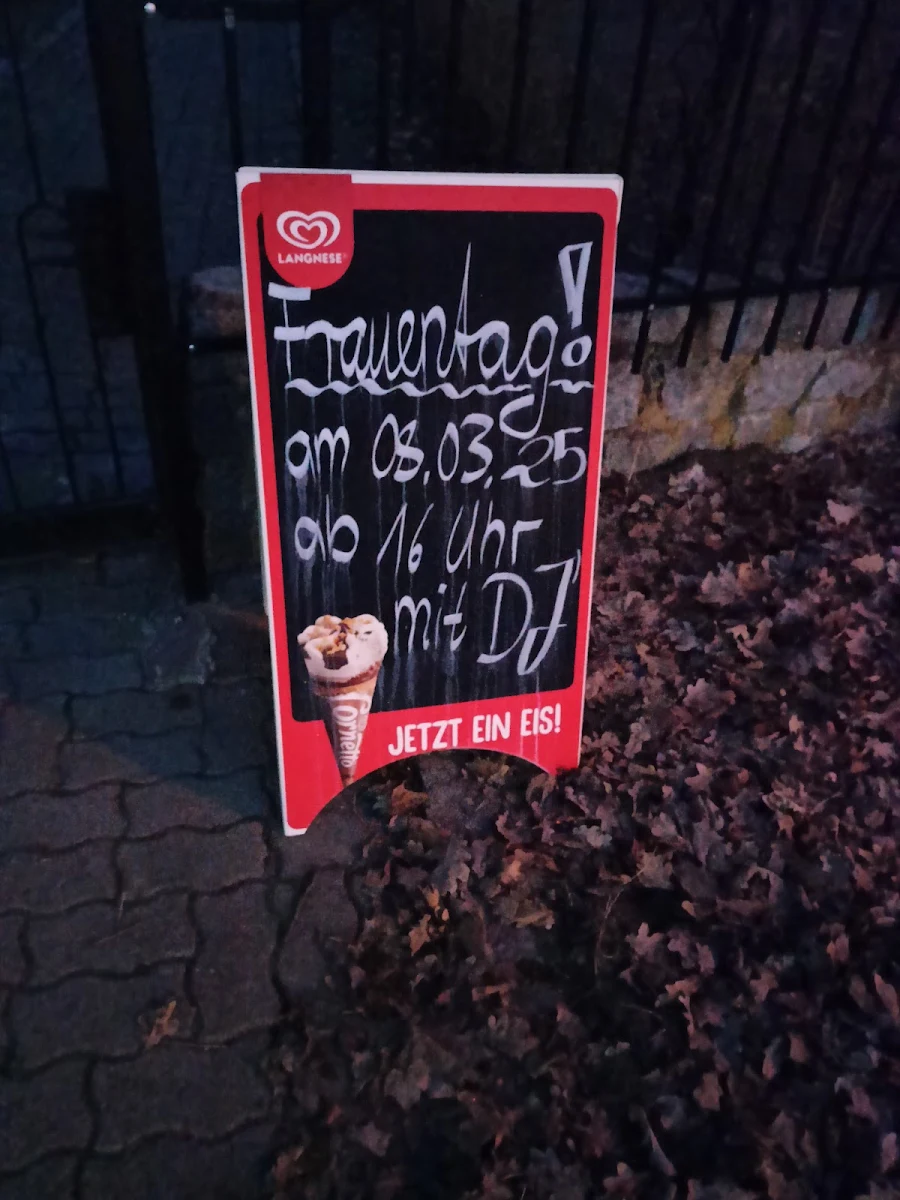 LANGNESE
Frauentag!
am 08.03.25
ab 16 Uhr
mit DJ
Cornetto
JETZT EIN EIS!